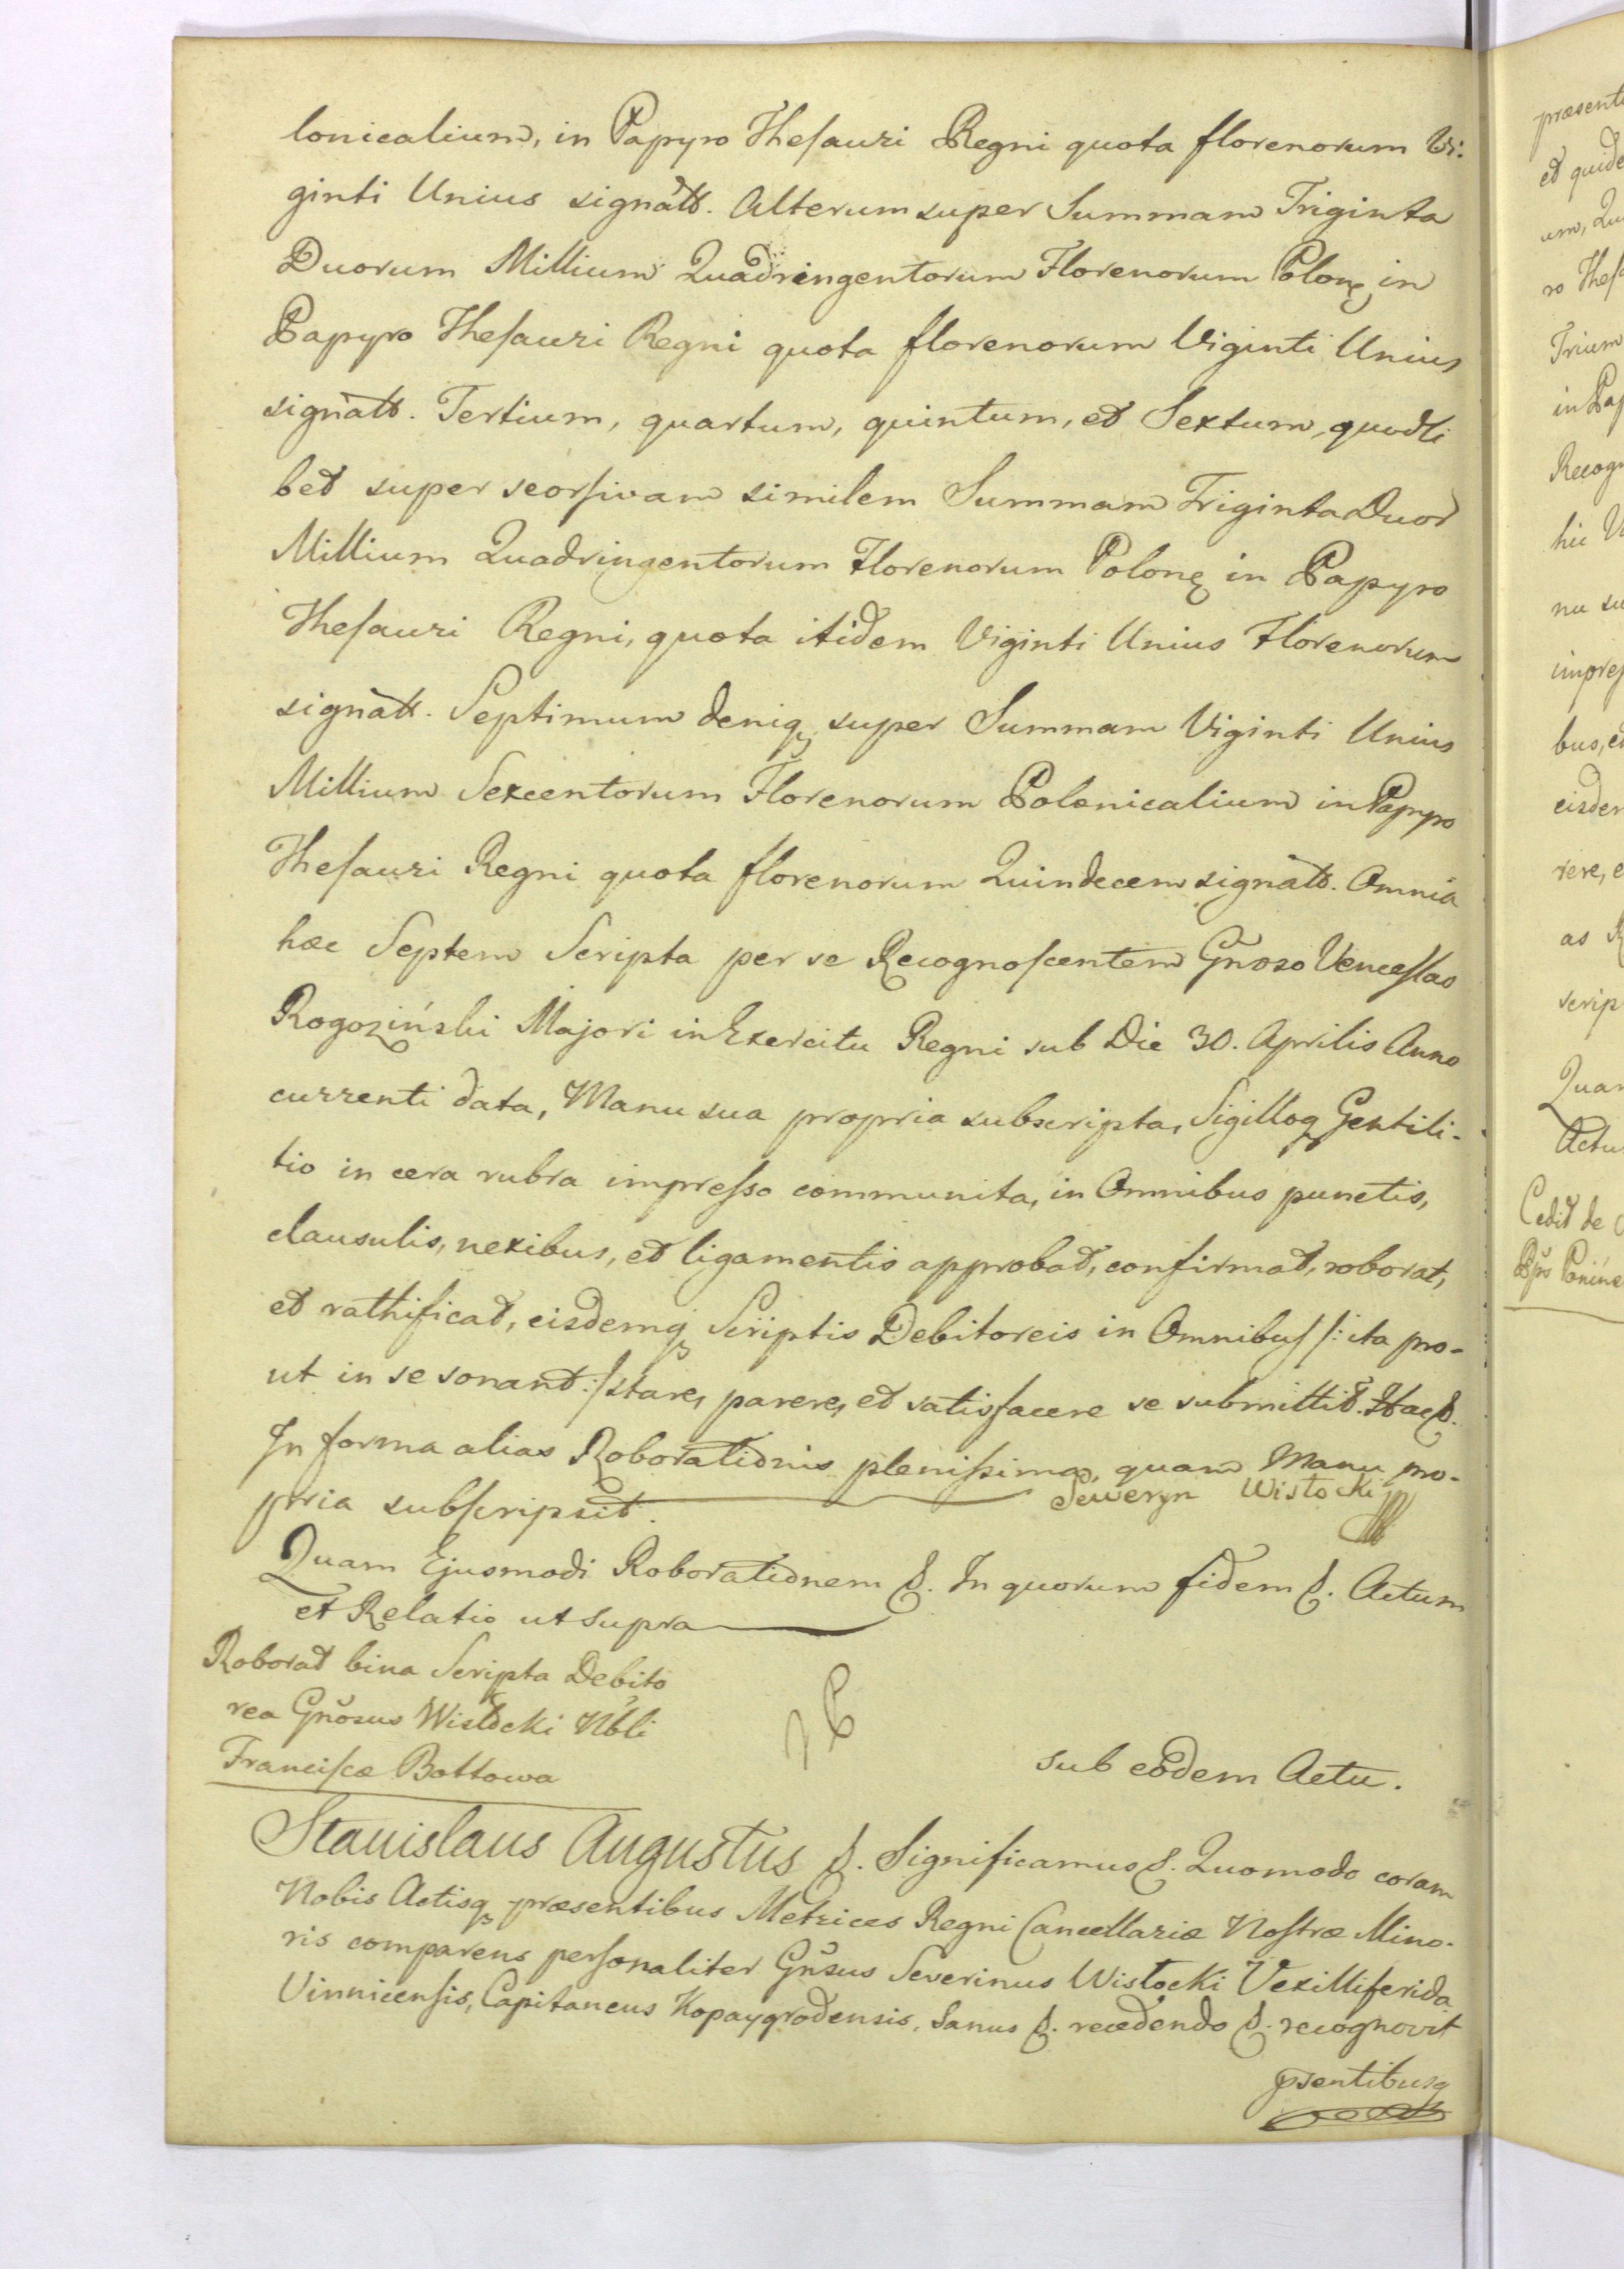 lonicalium, in Papyro Thesauri Regni quota florenorum Vi-
ginti Unius signatt. Alterum super Summam Triginta
Duorum Millium Quadringentorum Florenorum Polon, in
Papyro Thesauri Regni quota florenorum Viginti Unius
signatt. Tertium, quartum, quintum, et Sextum, quodli
bet super seorsivam similem Summam Triginta Duor
Millium Quadringentorum Florenorum Polon, in Papyro
Thesauri Regni, quota itidem Viginti Unius Florenorum
signatt. Septimum deniq super Summam Viginti Unius
Millium Sexcentorum Florenorum Polonicalium in Papyro
Thesauri Regni quota florenorum Quindecem signatt. Omnia
hæc Septem Scripta per se Recognoscentem Gnoso Venceslao
Rogoziński Majori in Exercitu Regni sub Die 30. Aprilis Anno
currenti data, Manu sua propria subscripta, Sigilloq Gentili-
tio in cera rubra impresso communita, in Omnibus punctis,
clausulis, nexibus, et ligamentis approbat, confirmat, roborat,
et rathificat, eisdemq Scriptis Debitoreis in Omnibus /: ita pro-
ut in se sonant :/ stare, parere, et satisfacere se submittit.
In forma alias Roborationis plenissima, quam Manu pro-
pria subscripsit. Seweryn Wisłocki
Quam Ejusmodi Roborationem &. In quorum fidem &. Actum
et Relatio ut supra
Roborat bina Scripta Debito
rea Gnosus Wisłocki Nbli
Franciscæ Bottowa
sub eodem Actu.
Stanislaus Augustus &. Significamus &. Quomodo coram
Nobis Actisq præsentibus Metrices Regni Cancellariæ Nostræ Mino-
ris comparens personaliter Gnsus Severinus Wisłocki Vexilliferida
Vinnicensis, Capitaneus Kopaygrodensis, Sanus &. recedendo &. recognovit
psentibusq
præsenti
et quide
um, Qu
ro Thesa
Trium
in Pap
Recogn
hic
nu su
impres
bus, et
eisdem
rere, e
as
scrip
Quam
Actu
Cedit de